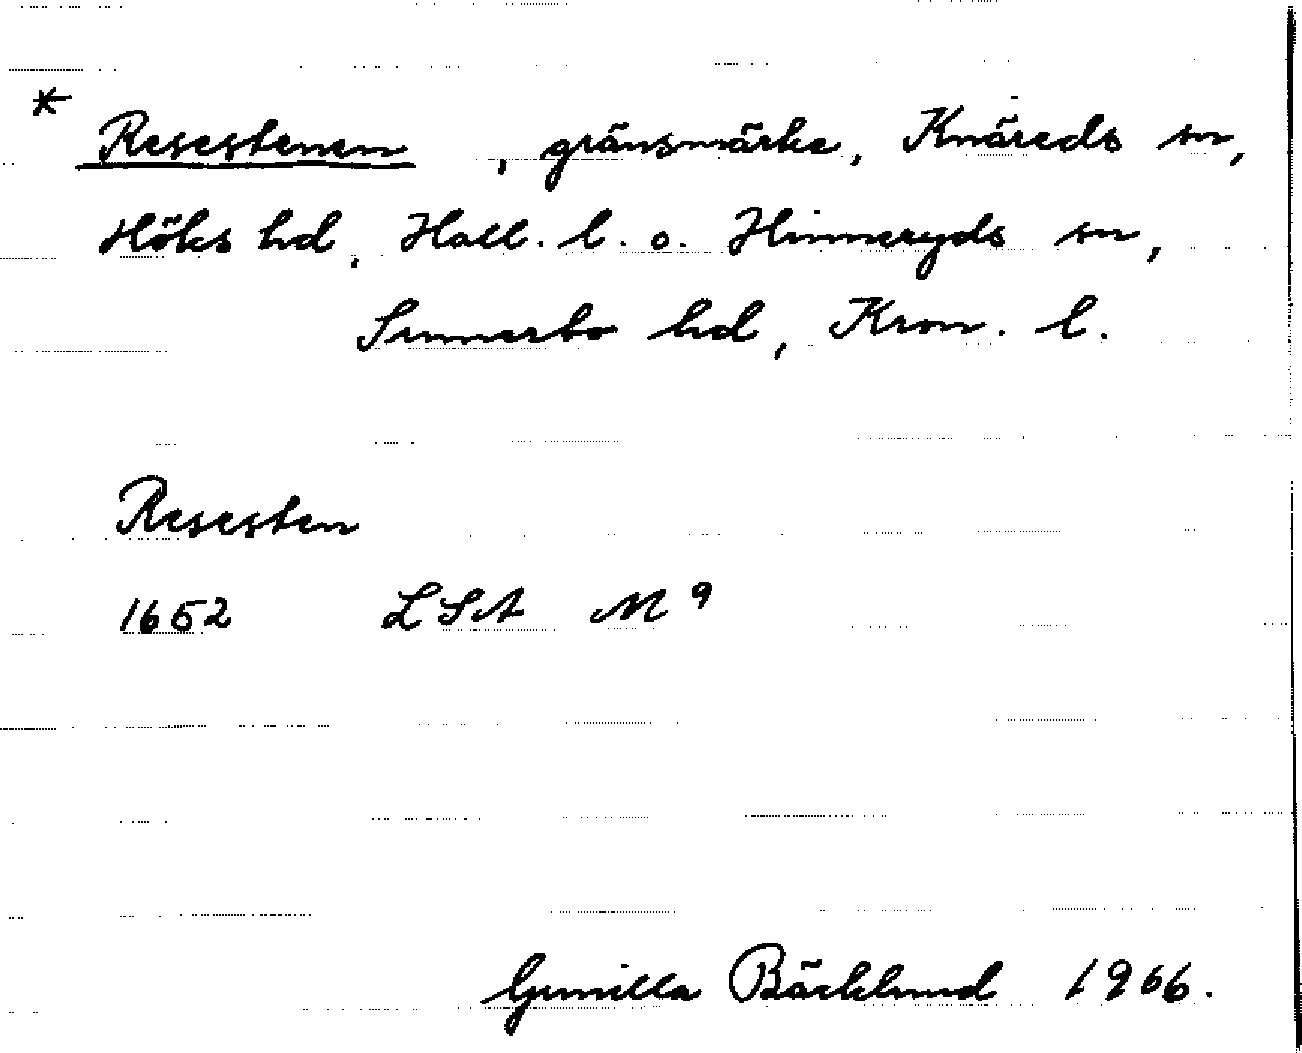 * Resestenen, gränsmärke, Knäreds sn,
Höks hd, Hall. l. o. Hinneryds sn,
Sunnerbo hd, Kron. l.
Resesten
1652 LSA M 9
Gunilla Bäcklund 1966.